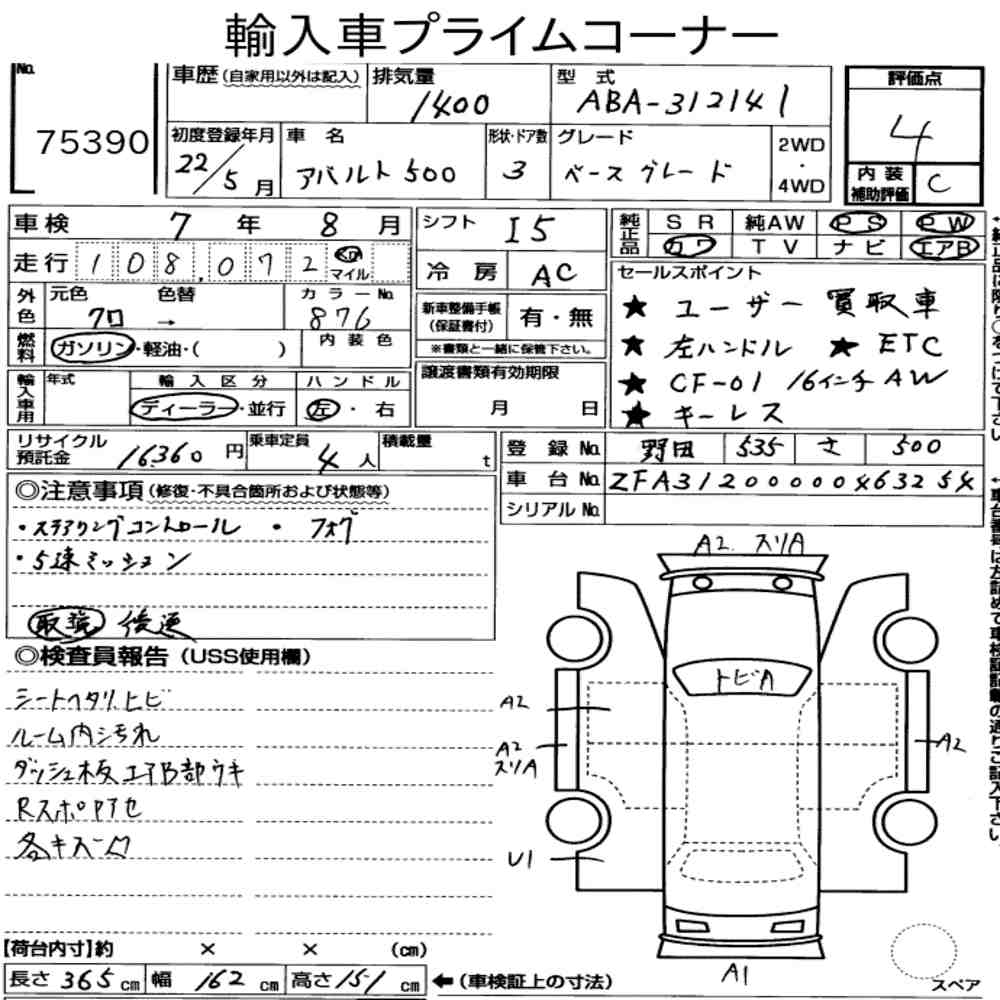 輸入車プライムコーナー
No.
75390
車歴(自家用以外は記入)
排気量
1400
型 式
ABA-312141
評価点
4
初度登録年月
22/5月
車 名
アバルト500
形状・ドア数
3
グレード
ベース グレード
2WD
・
4WD
内 装
補助評価
C
車検 7年 8月
シフト
I5
純正品
SR 純AW PS PW
カワ TV ナビ エアB
走行 108,072 km
マイル
冷 房
AC
セールスポイント
★ ユーザー 買取車
★ 左ハンドル ★ ETC
★ CF-01 16インチAW
★ キーレス
外色
元色 色替
クロ →
カラーNo.
876
新車整備手帳
(保証書付)
有・無
※書類と一緒に保管下さい。
燃料
ガソリン・軽油・( )
内 装 色
譲渡書類有効期限
月 日
輸入車用
年式
輸 入 区 分
ディーラー・並行
ハ ン ド ル
左・右
リサイクル
預託金
16360円
乗車定員
4人
積載量
t
登 録 No. 野田 535 さ 500
車 台 No. ZFA31200000463254
シリアル No.
◎注意事項(修復・不具合箇所および状態等)
・ステアリングコントロール ・フォグ
・5速ミッション
取説 後送
◎検査員報告(USS使用欄)
シートヘタリ、ヒビ
ルーム内汚れ
ダッシュ板エアB部ウキ
Rスポ色アセ
各キズ凹
A2. スリA
トビA
A2
A2
スリA
A2
U1
A1
スペア
【荷台内寸】約 × × (cm)
長さ 365 cm 幅 162 cm 高さ 151 cm
←(車検証上の寸法)